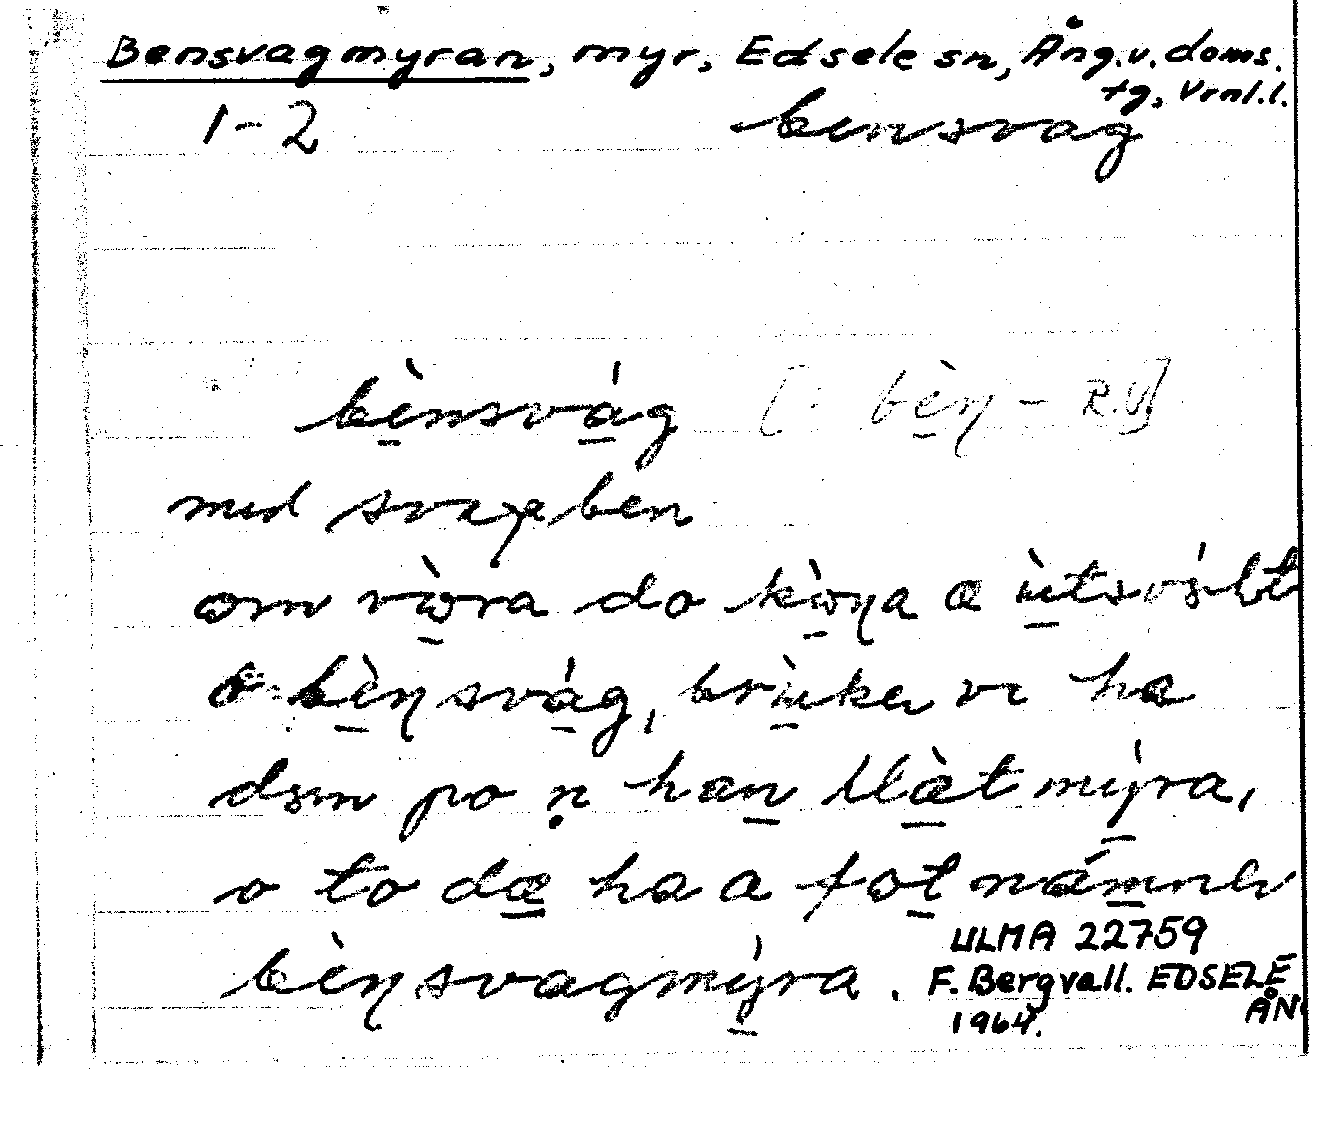 Bensvagmyran, myr, Edsele sn, Ång.v.doms.
tg, Vrnl.l.
1-2 bensvag
bènsvág [: bèŋ- R.U]
med svaga ben
om vòra do kòŋa a ùtsvålt
o bèŋsvág, brùker vi ha
dem po n han llàt mýra,
o to dæ ha a fot námnle
bèŋsvagmỳra.
ULMA 22759
F. Bergvall. EDSELE
ÅNG
1964.